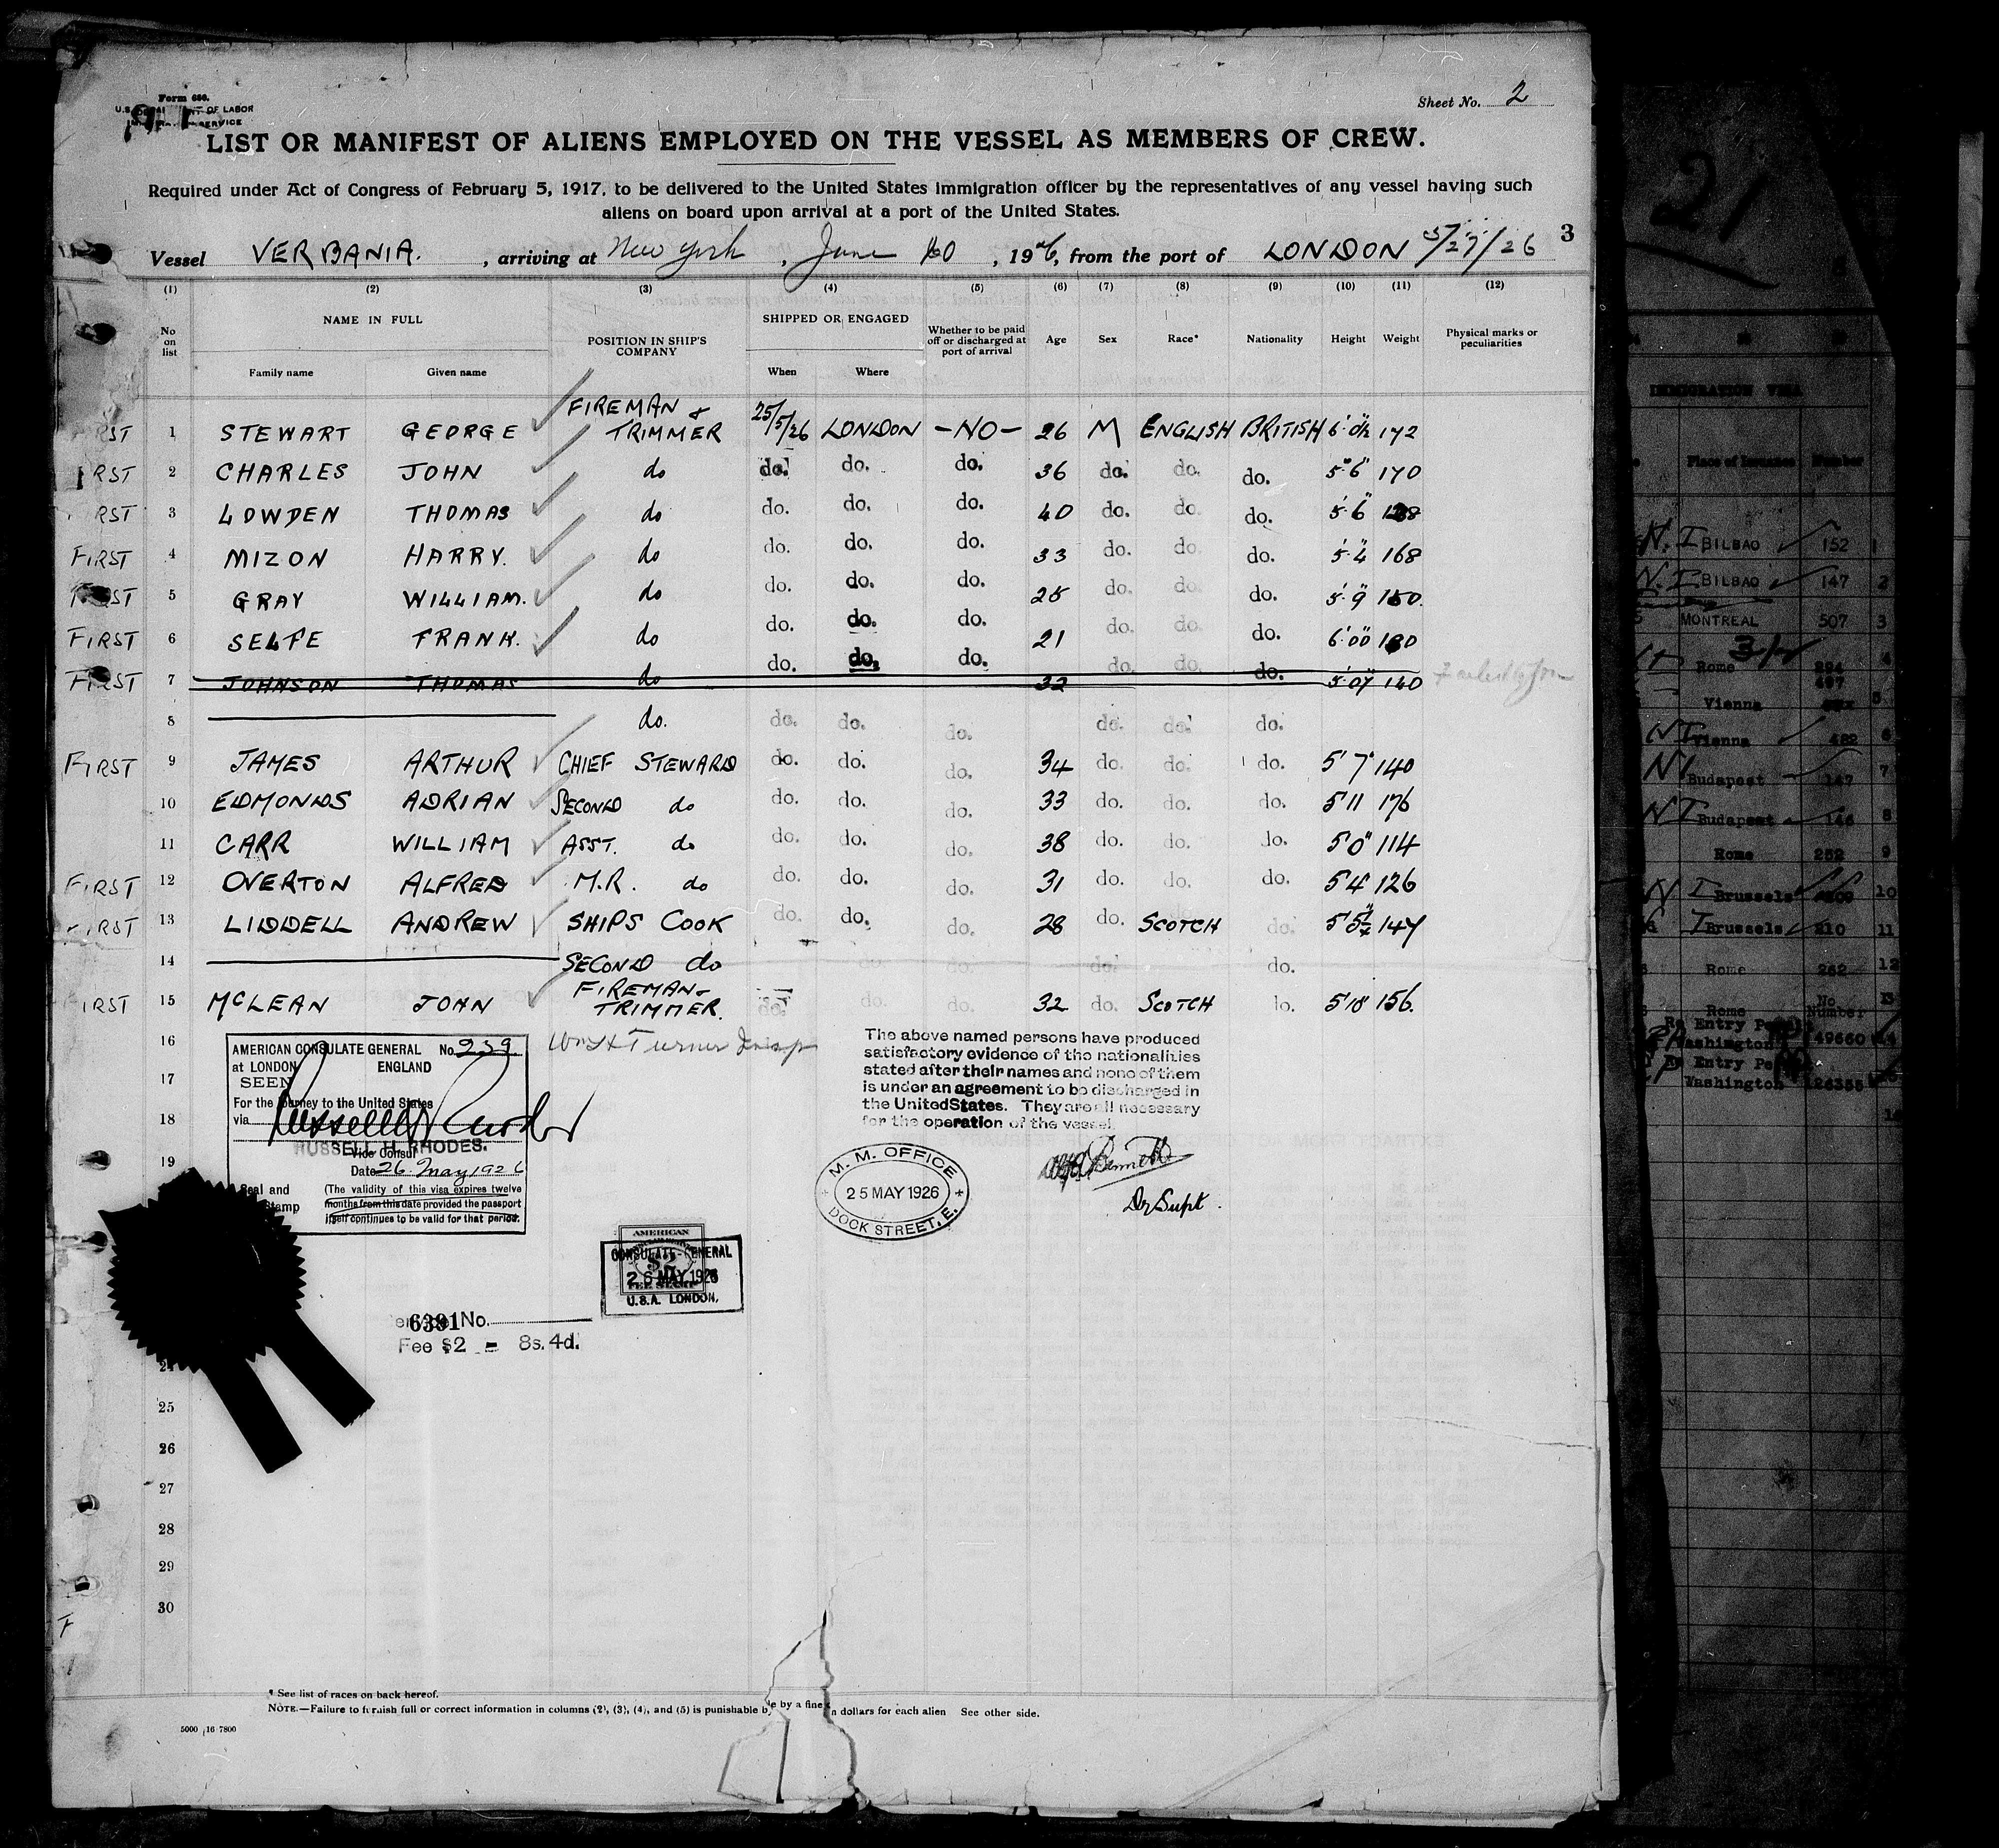 Form 680.
U.S. OF LABOR
SERVICE
Sheet No. 2
LIST OR MANIFEST OF ALIENS EMPLOYED ON THE VESSEL AS MEMBERS OF CREW.
Required under Act of Congress of February 5, 1917, to be delivered to the United States immigration officer by the representatives of any vessel having such
aliens on board upon arrival at a port of the United States.
3
Vessel VERBANIA. , arriving at New York , June 10 , 1926, from the port of LONDON 5/27/26
(1) (2) (3) (4) (5) (6) (7) (8) (9) (10) (11) (12)
No on list NAME IN FULL Family name Given name POSITION IN SHIP'S COMPANY SHIPPED OR ENGAGED When Where Whether to be paid off or discharged at port of arrival Age Sex Race* Nationality Height Weight Physical marks or peculiarities
RST 1 STEWART GEORGE FIREMAN & TRIMMER 25/5/26 LONDON -NO- 26 M ENGLISH BRITISH 172
RST 2 CHARLES JOHN do do. do. do. 36 do. do. do. 5'6" 170
RST 3 LOWDEN THOMAS do do. do. do. 40 do. do. do. 5'6"
FIRST 4 MIZON HARRY. do do. do. do. 33 do. do. do. 5'4" 168
FIRST 5 GRAY WILLIAM. do do. do. do. 28 do. do. do. 5'9" 150.
FIRST 6 SELFE FRANK. do do. do. do. 21 do. do. do. 6'00"
FIRST 7 JOHNSON THOMAS do do. do. do. 32 do. do. do. 5'07" 140
8 do. do. do. do. do. do. do.
FIRST 9 JAMES ARTHUR CHIEF STEWARD do. do. do. 34 do. do. do. 5'7" 140
10 EDMONDS ADRIAN SECOND do do. do. do. 33 do. do. do. 5'11 176
11 CARR WILLIAM ASST. do do. do. do. 38 do. do. do. 5'0" 114
FIRST 12 OVERTON ALFRED M.R. do do. do. do. 31 do. do. do. 5'4" 126
FIRST 13 LIDDELL ANDREW SHIPS COOK do. do. do. 28 do. SCOTCH do. 147
14 SECOND do do. do. do. do.
FIRST 15 McLEAN JOHN FIREMAN- TRIMMER. do. do. do. 32 do. SCOTCH do. 156.
16
17
18
19
24
25
26
27
28
29
30
AMERICAN CONSULATE GENERAL No. 239
at LONDON ENGLAND
SEEN
For the journey to the United States
via
RUSSELL H. RHODES.
Vice Consul
Date 26 May 1926
Seal and Stamp
(The validity of this visa expires twelve
months from this date provided the passport
itself continues to be valid for that period.
The above named persons have produced
satisfactory evidence of the nationalities
stated after their names and none of them
is under an agreement to be discharged in
the United States. They are all necessary
for the operation of the vessel.
M. M. OFFICE
25 MAY 1926
DOCK STREET, E.
Bennett
Dy Supt.
AMERICAN
CONSULATE-GENERAL
$2
26 MAY 1926
FEE STAMP
U.S.A. LONDON.
6391 No.
Fee $2 = 8s. 4d.
* See list of races on back hereof.
NOTE.—Failure to furnish full or correct information in columns (2), (3), (4), and (5) is punishable by a fine n dollars for each alien See other side.
5000 16 7800
21
IMMIGRATION VISA
Place of Issuance Number
N.I BILBAO 152 1
N.I BILBAO 147 2
MONTREAL 507 3
Rome 4
Vienna 5
NI Vienna 482 6
NI Budapest 147 7
NI Budapest 146 8
Rome 252 9
N I Brussels 10
Brussels 210 11
Rome 262 12
Rome No Number 13
Re Entry Permit Washington 49660 14
Re Entry Permit Washington 126355